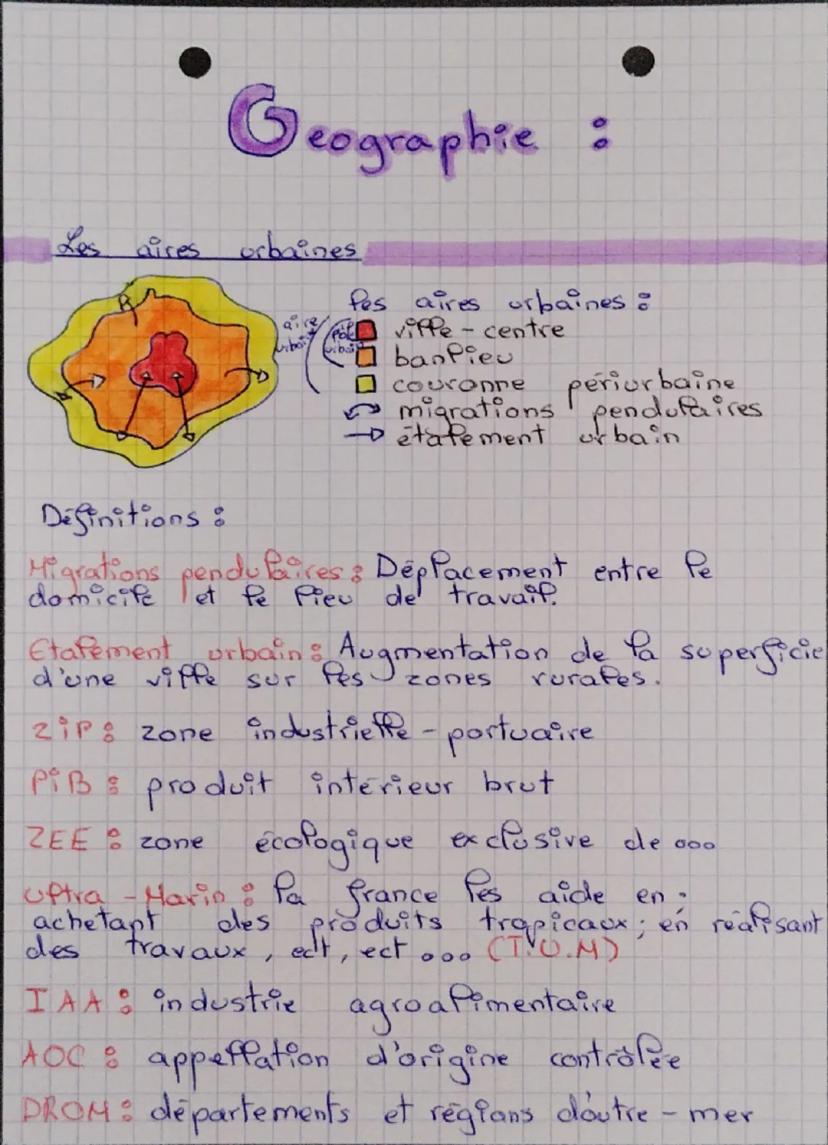 Geographie :
Les aires urbaines
Les aires urbaines :
aire urbaine
pôle urbain
ville-centre
banlieu
couronne périurbaine
migrations pendulaires
étalement urbain
Définitions :
Migrations pendulaires : Déplacement entre le
domicile et le lieu de travail.
Etalement urbain : Augmentation de la superficie
d'une ville sur les zones rurales.
ZiP : zone industrielle - portuaire
PiB : produit intérieur brut
ZEE : zone écologique exclusive de ...
Ultra-Marin : la france les aide en :
achetant des produits tropicaux ; en réalisant
des travaux, ect, ect ... (T.O.M)
IAA : industrie agroalimentaire
AOC : appellation d'origine contrôlée
DROM : départements et régions d'outre-mer